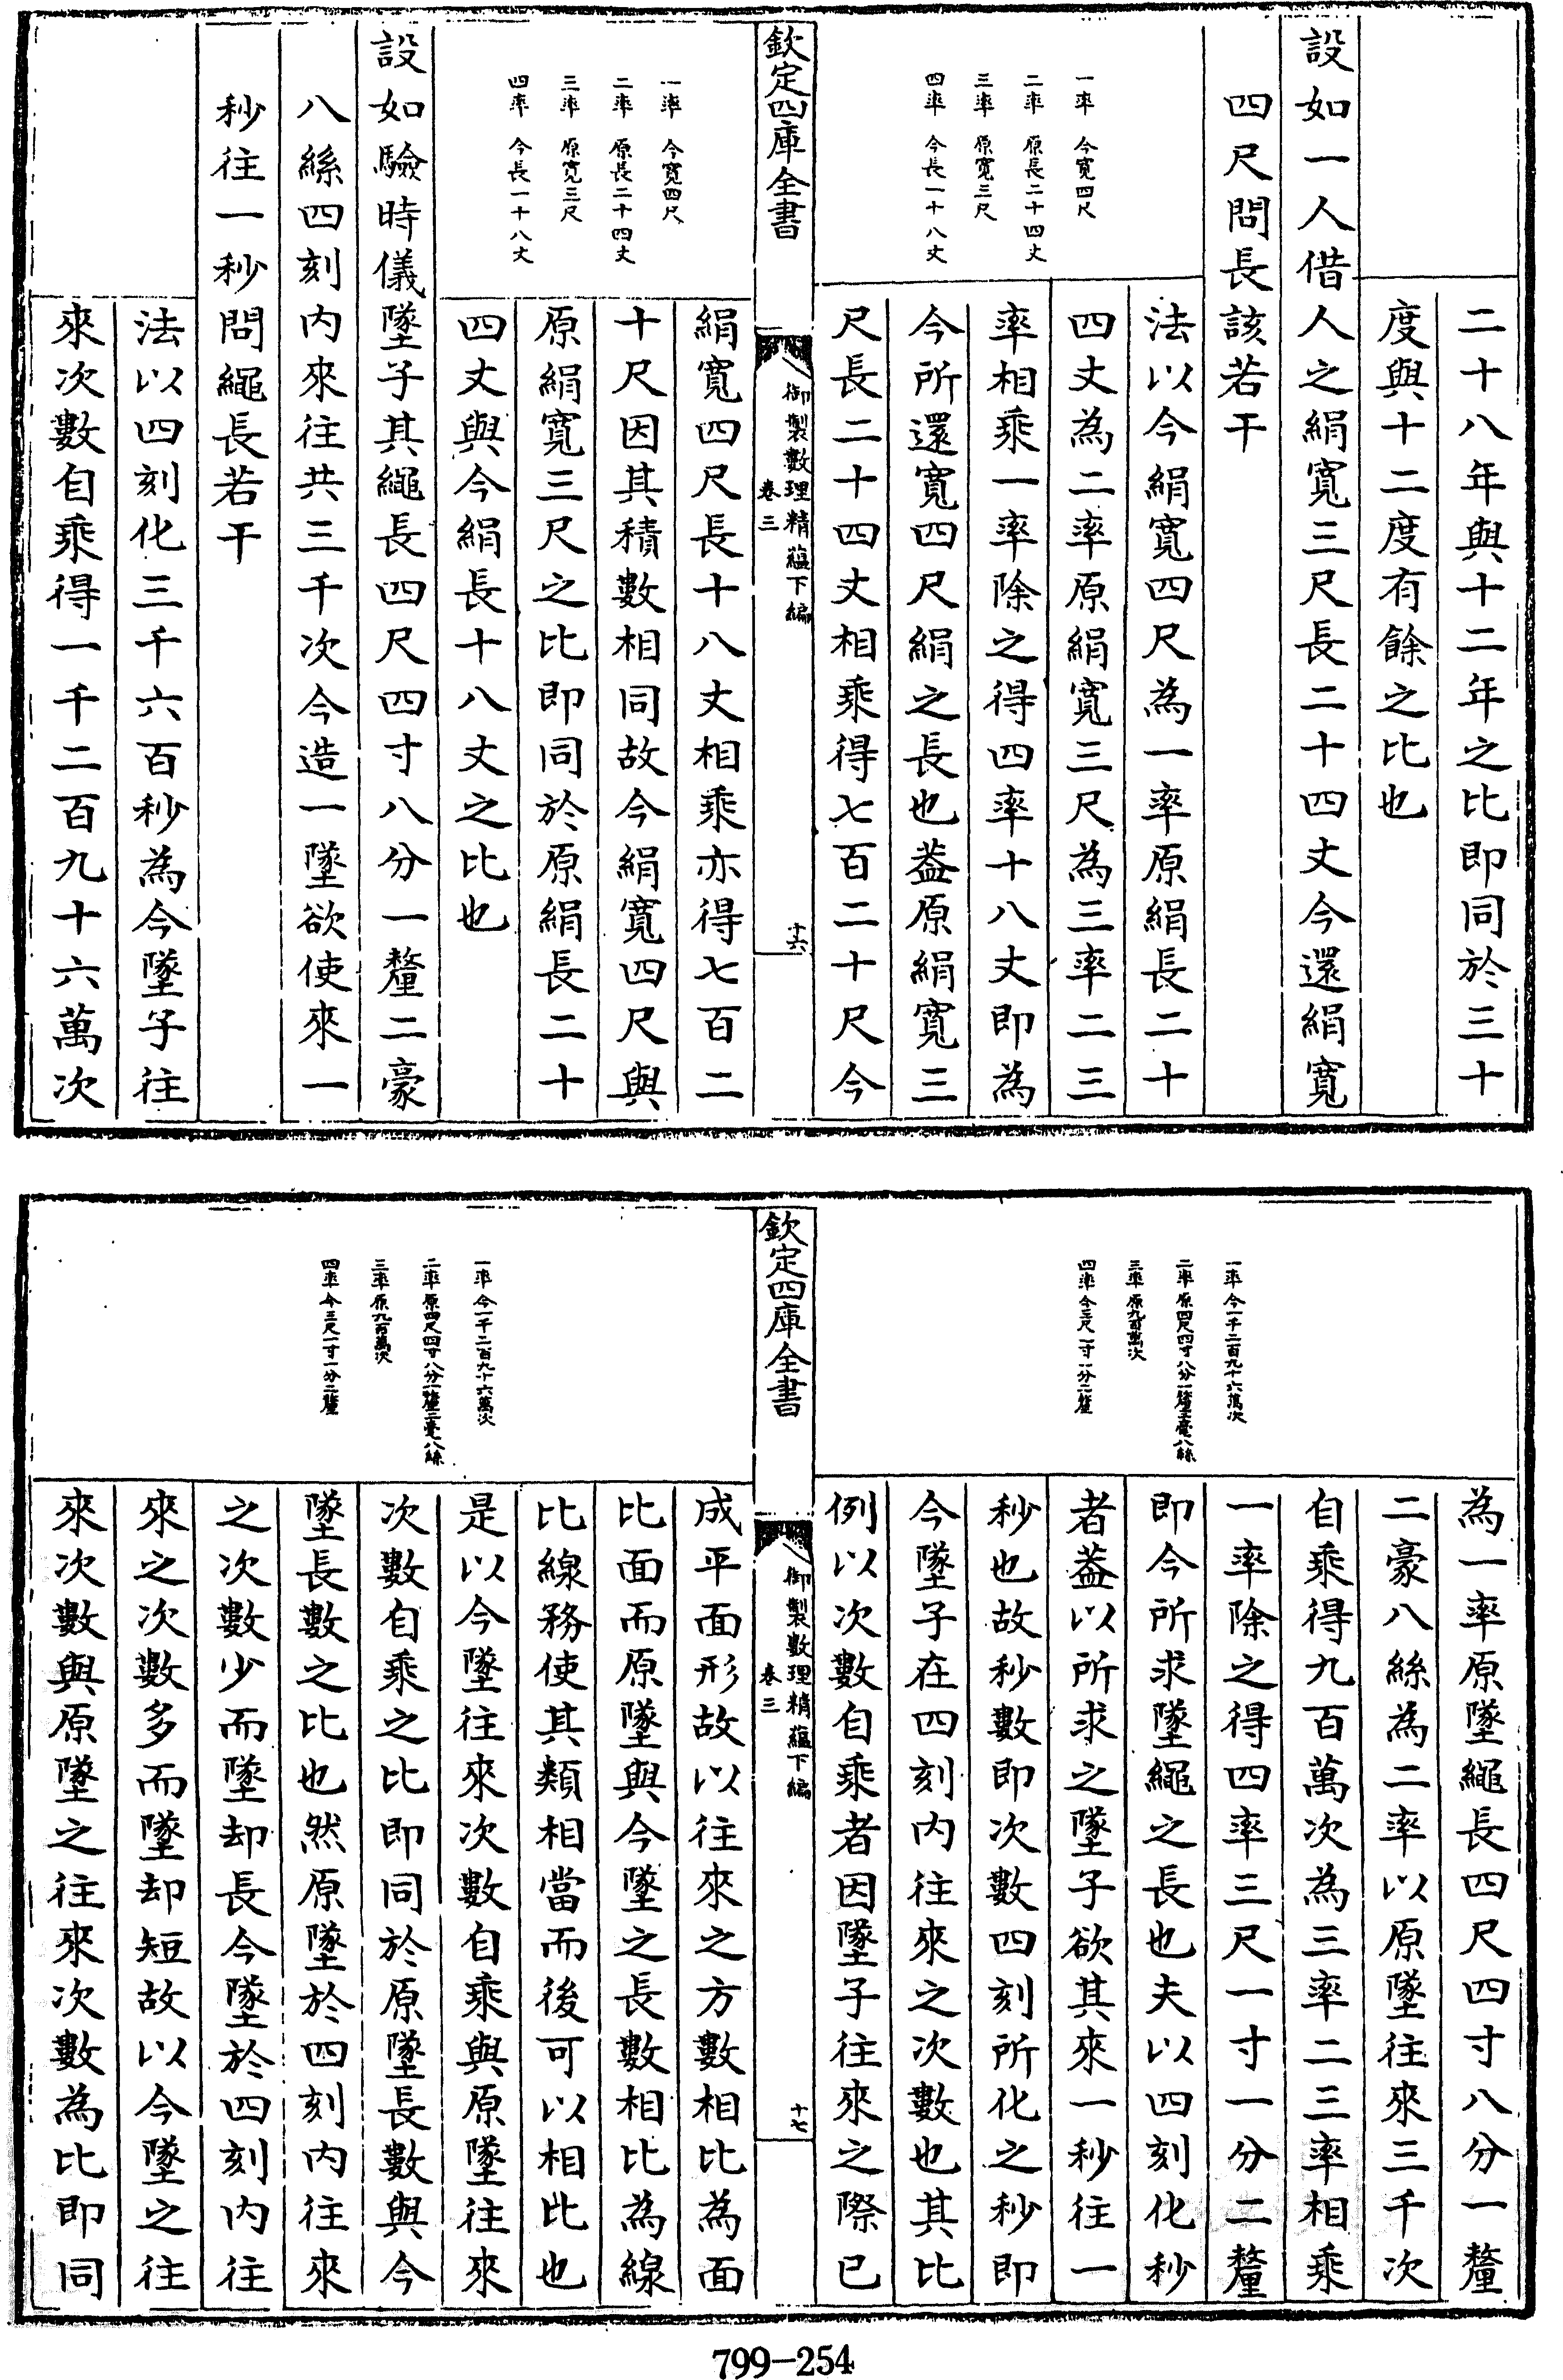 二十八年與十二年之比即同於三十
度與十二度有餘之比也
設如一人借人之絹寛三尺長二十四丈今還絹寛
四尺問長該若干
一率 今寛四尺
二率 原長二十四丈
三率 原寛三尺
四率 今長一十八丈
法以今絹寛四尺為一率原絹長二十
四丈為二率原絹寛三尺為三率二三
率相乘一率除之得四率十八丈即為
今所還寛四尺絹之長也葢原絹寛三
尺長二十四丈相乘得七百二十尺今
欽定四庫全書
御製數理精蘊下編
卷三
十六
一率 今寛四尺
二率 原長二十四丈
三率 原寛三尺
四率 今長一十八丈
絹寛四尺長十八丈相乘亦得七百二
十尺因其積數相同故今絹寛四尺與
原絹寛三尺之比即同於原絹長二十
四丈與今絹長十八丈之比也
設如驗時儀墜子其繩長四尺四寸八分一釐二豪
八絲四刻内來往共三千次今造一墜欲使來一
秒往一秒問繩長若干
法以四刻化三千六百秒為今墜子往
來次數自乘得一千二百九十六萬次
一率 今一千二百九十六萬次
二率 原四尺四寸八分一釐二毫八絲
三率 原九百萬次
四率 今三尺一寸一分二釐
為一率原墜繩長四尺四寸八分一釐
二豪八絲為二率以原墜往來三千次
自乘得九百萬次為三率二三率相乘
一率除之得四率三尺一寸一分二釐
即今所求墜繩之長也夫以四刻化秒
者葢以所求之墜子欲其來一秒往一
秒也故秒數即次數四刻所化之秒即
今墜子在四刻内往來之次數也其比
例以次數自乘者因墜子往來之際已
欽定四庫全書
御製數理精蘊下編
卷三
十七
一率 今一千二百九十六萬次
二率 原四尺四寸八分一釐二毫八絲
三率 原九百萬次
四率 今三尺一寸一分二釐
成平面形故以往來之方數相比為面
比面而原墜與今墜之長數相比為線
比線務使其類相當而後可以相比也
是以今墜往來次數自乘與原墜往來
次數自乘之比即同於原墜長數與今
墜長數之比也然原墜於四刻内往來
之次數少而墜却長今墜於四刻内往
來之次數多而墜却短故以今墜之往
來次數與原墜之往來次數為比即同
799-254